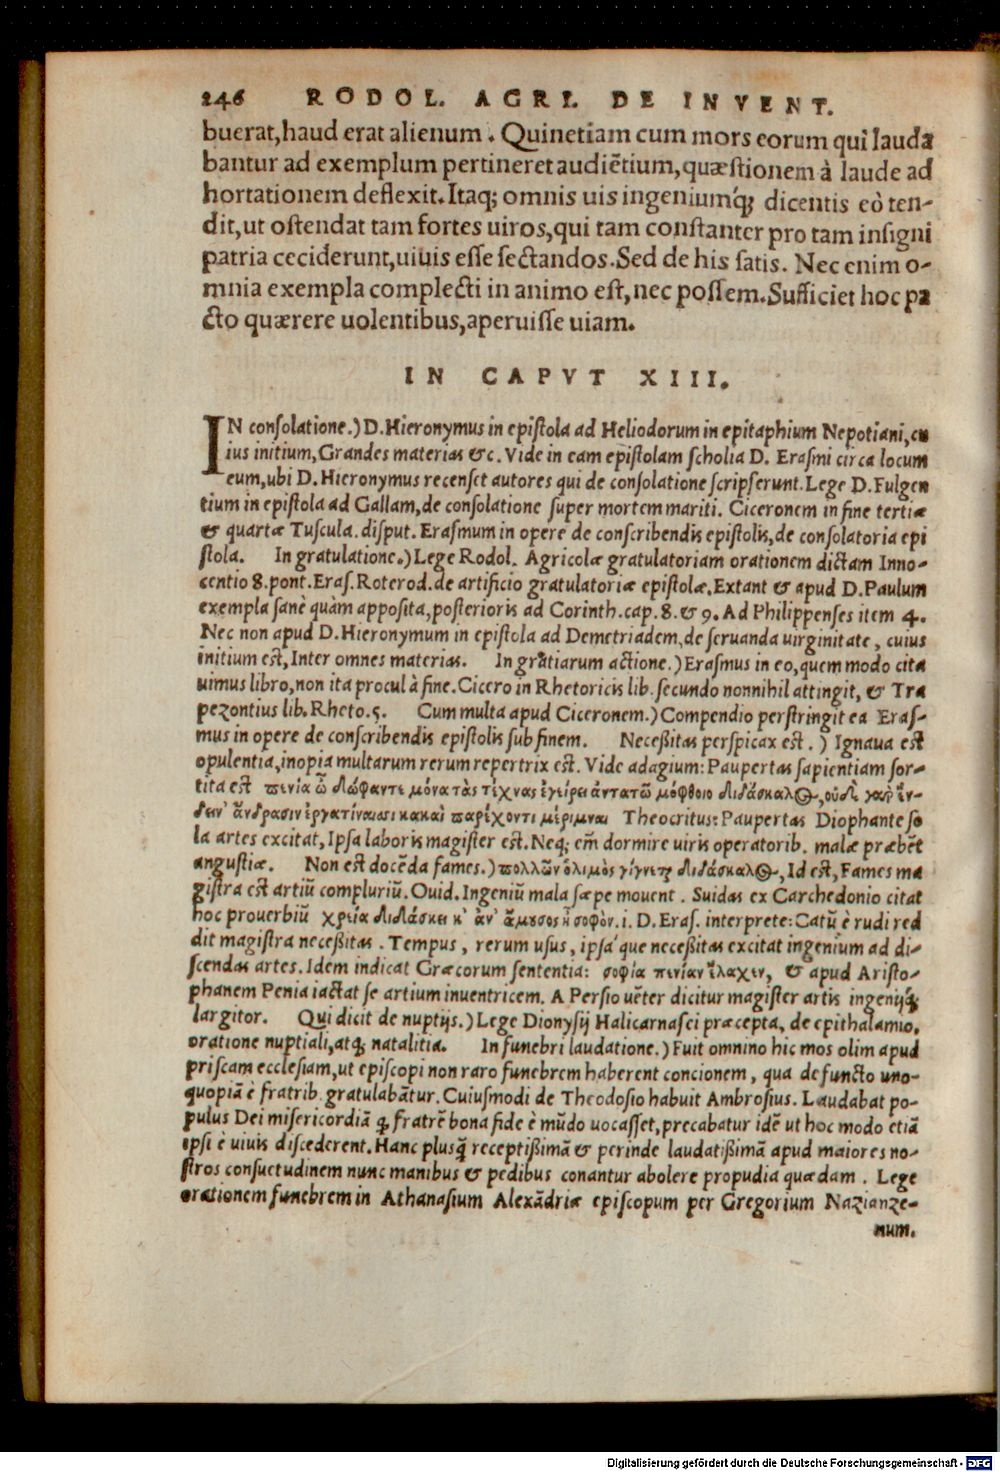 246 RODOL. AGRI. DE INVENT.
buerat, haud erat alienum. Quinetiam cum mors eorum qui lauda
bantur ad exemplum pertineret audiẽtium, quæstionem à laude ad
hortationem deflexit. Itaq; omnis uis ingeniumq́; dicentis eò ten-
dit, ut ostendat tam fortes uiros, qui tam constanter pro tam insigni
patria ceciderunt, uiuis esse sectandos. Sed de his satis. Nec enim o-
mnia exempla complecti in animo est, nec possem. Sufficiet hoc pa
cto quærere uolentibus, aperuisse uiam.
IN CAPVT XIII.
IN consolatione.) D. Hieronymus in epistola ad Heliodorum in epitaphium Nepotiani, cu
ius initium, Grandes materias &c. Vide in eam epistolam scholia D. Erasmi circa locum
eum, ubi D. Hieronymus recenset autores qui de consolatione scripserunt. Lege D. Fulgen
tium in epistola ad Gallam, de consolatione super mortem mariti. Ciceronem in fine tertiæ
& quartæ Tuscula. disput. Erasmum in opere de conscribendis epistolis, de consolatoria epi
stola. In gratulatione.) Lege Rodol. Agricolæ gratulatoriam orationem dictam Inno-
centio 8. pont. Eras. Roterod. de artificio gratulatoriæ epistolæ. Extant & apud D. Paulum
exempla sanè quàm apposita, posterioris ad Corinth. cap. 8. & 9. Ad Philippenses item 4.
Nec non apud D. Hieronymum in epistola ad Demetriadem, de seruanda uirginitate, cuius
initium est, Inter omnes materias. In gratiarum actione.) Erasmus in eo, quem modo cita
uimus libro, non ita procul à fine. Cicero in Rhetoricis lib. secundo nonnihil attingit, & Tra
pezontius lib. Rheto. 5. Cum multa apud Ciceronem.) Compendio perstringit ea Eras-
mus in opere de conscribendis epistolis sub finem. Neceßitas perspicax est.) Ignaua est
opulentia, inopia multarum rerum repertrix est. Vide adagium: Paupertas sapientiam sor-
tita est πενία ὦ διόφαντε μόνα τὰς τέχνας ἐγείρει ἁντατῶ μόχθοιο διδάσκαλος, οὐδὲ γαρ̀ ἕυ-
δειν ἄνδρασιν ἐργατίναισι κακαὶ παρέχοντι μέριμναι Theocritus: Paupertas Diophante so
la artes excitat, Ipsa laboris magister est. Neq; em̃ dormire uiris operatorib. malæ præbẽt
angustiæ. Non est docẽda fames.) πολλῶν ὁ λιμὸς γίγνεται διδάσκαλος, Id est, Fames ma
gistra est artiũ compluriũ. Ouid. Ingeniũ mala sæpe mouent. Suidas ex Carchedonio citat
hoc prouerbiũ χρεία διδάσκει κ' ἀν' ἄμουσος ᾖ σοφὸν. i. D. Eras. interprete: Catũ è rudi red
dit magistra neceßitas. Tempus, rerum usus, ipsa que neceßitas excitat ingenium ad di-
scendas artes. Idem indicat Græcorum sententia: σοφία πενίαν ἔλαχεν, & apud Aristo-
phanem Penia iactat se artium inuentricem. A Persio uẽter dicitur magister artis ingenijq́;
largitor. Qui dicit de nuptijs.) Lege Dionysij Halicarnasei præcepta, de epithalamio,
oratione nuptiali, atq; natalitia. In funebri laudatione.) Fuit omnino hic mos olim apud
priscam ecclesiam, ut episcopi non raro funebrem haberent concionem, qua defuncto uno-
quopiã è fratrib. gratulabãtur. Cuiusmodi de Theodosio habuit Ambrosius. Laudabat po-
pulus Dei misericordiã q, fratrẽ bona fide è mũdo uocasset, precabatur idẽ ut hoc modo etiã
ipsi è uiuis discederent. Hanc plusq̃ receptißimã & perinde laudatißimã apud maiores no-
stros consuetudinem nunc manibus & pedibus conantur abolere propudia quædam. Lege
orationem funebrem in Athanasium Alexãdriæ episcopum per Gregorium Nazianze-
num.
Digitalisierung gefördert durch die Deutsche Forschungsgemeinschaft - DFG